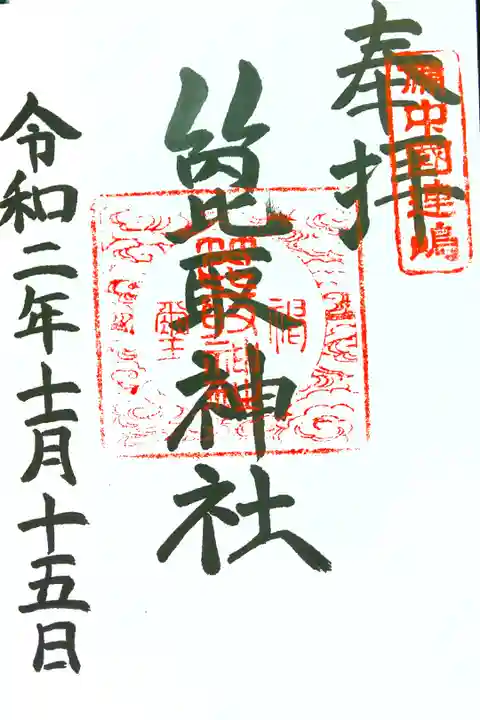 奉拝
備中國連嶋
箆取神社
令和二年十一月十五日